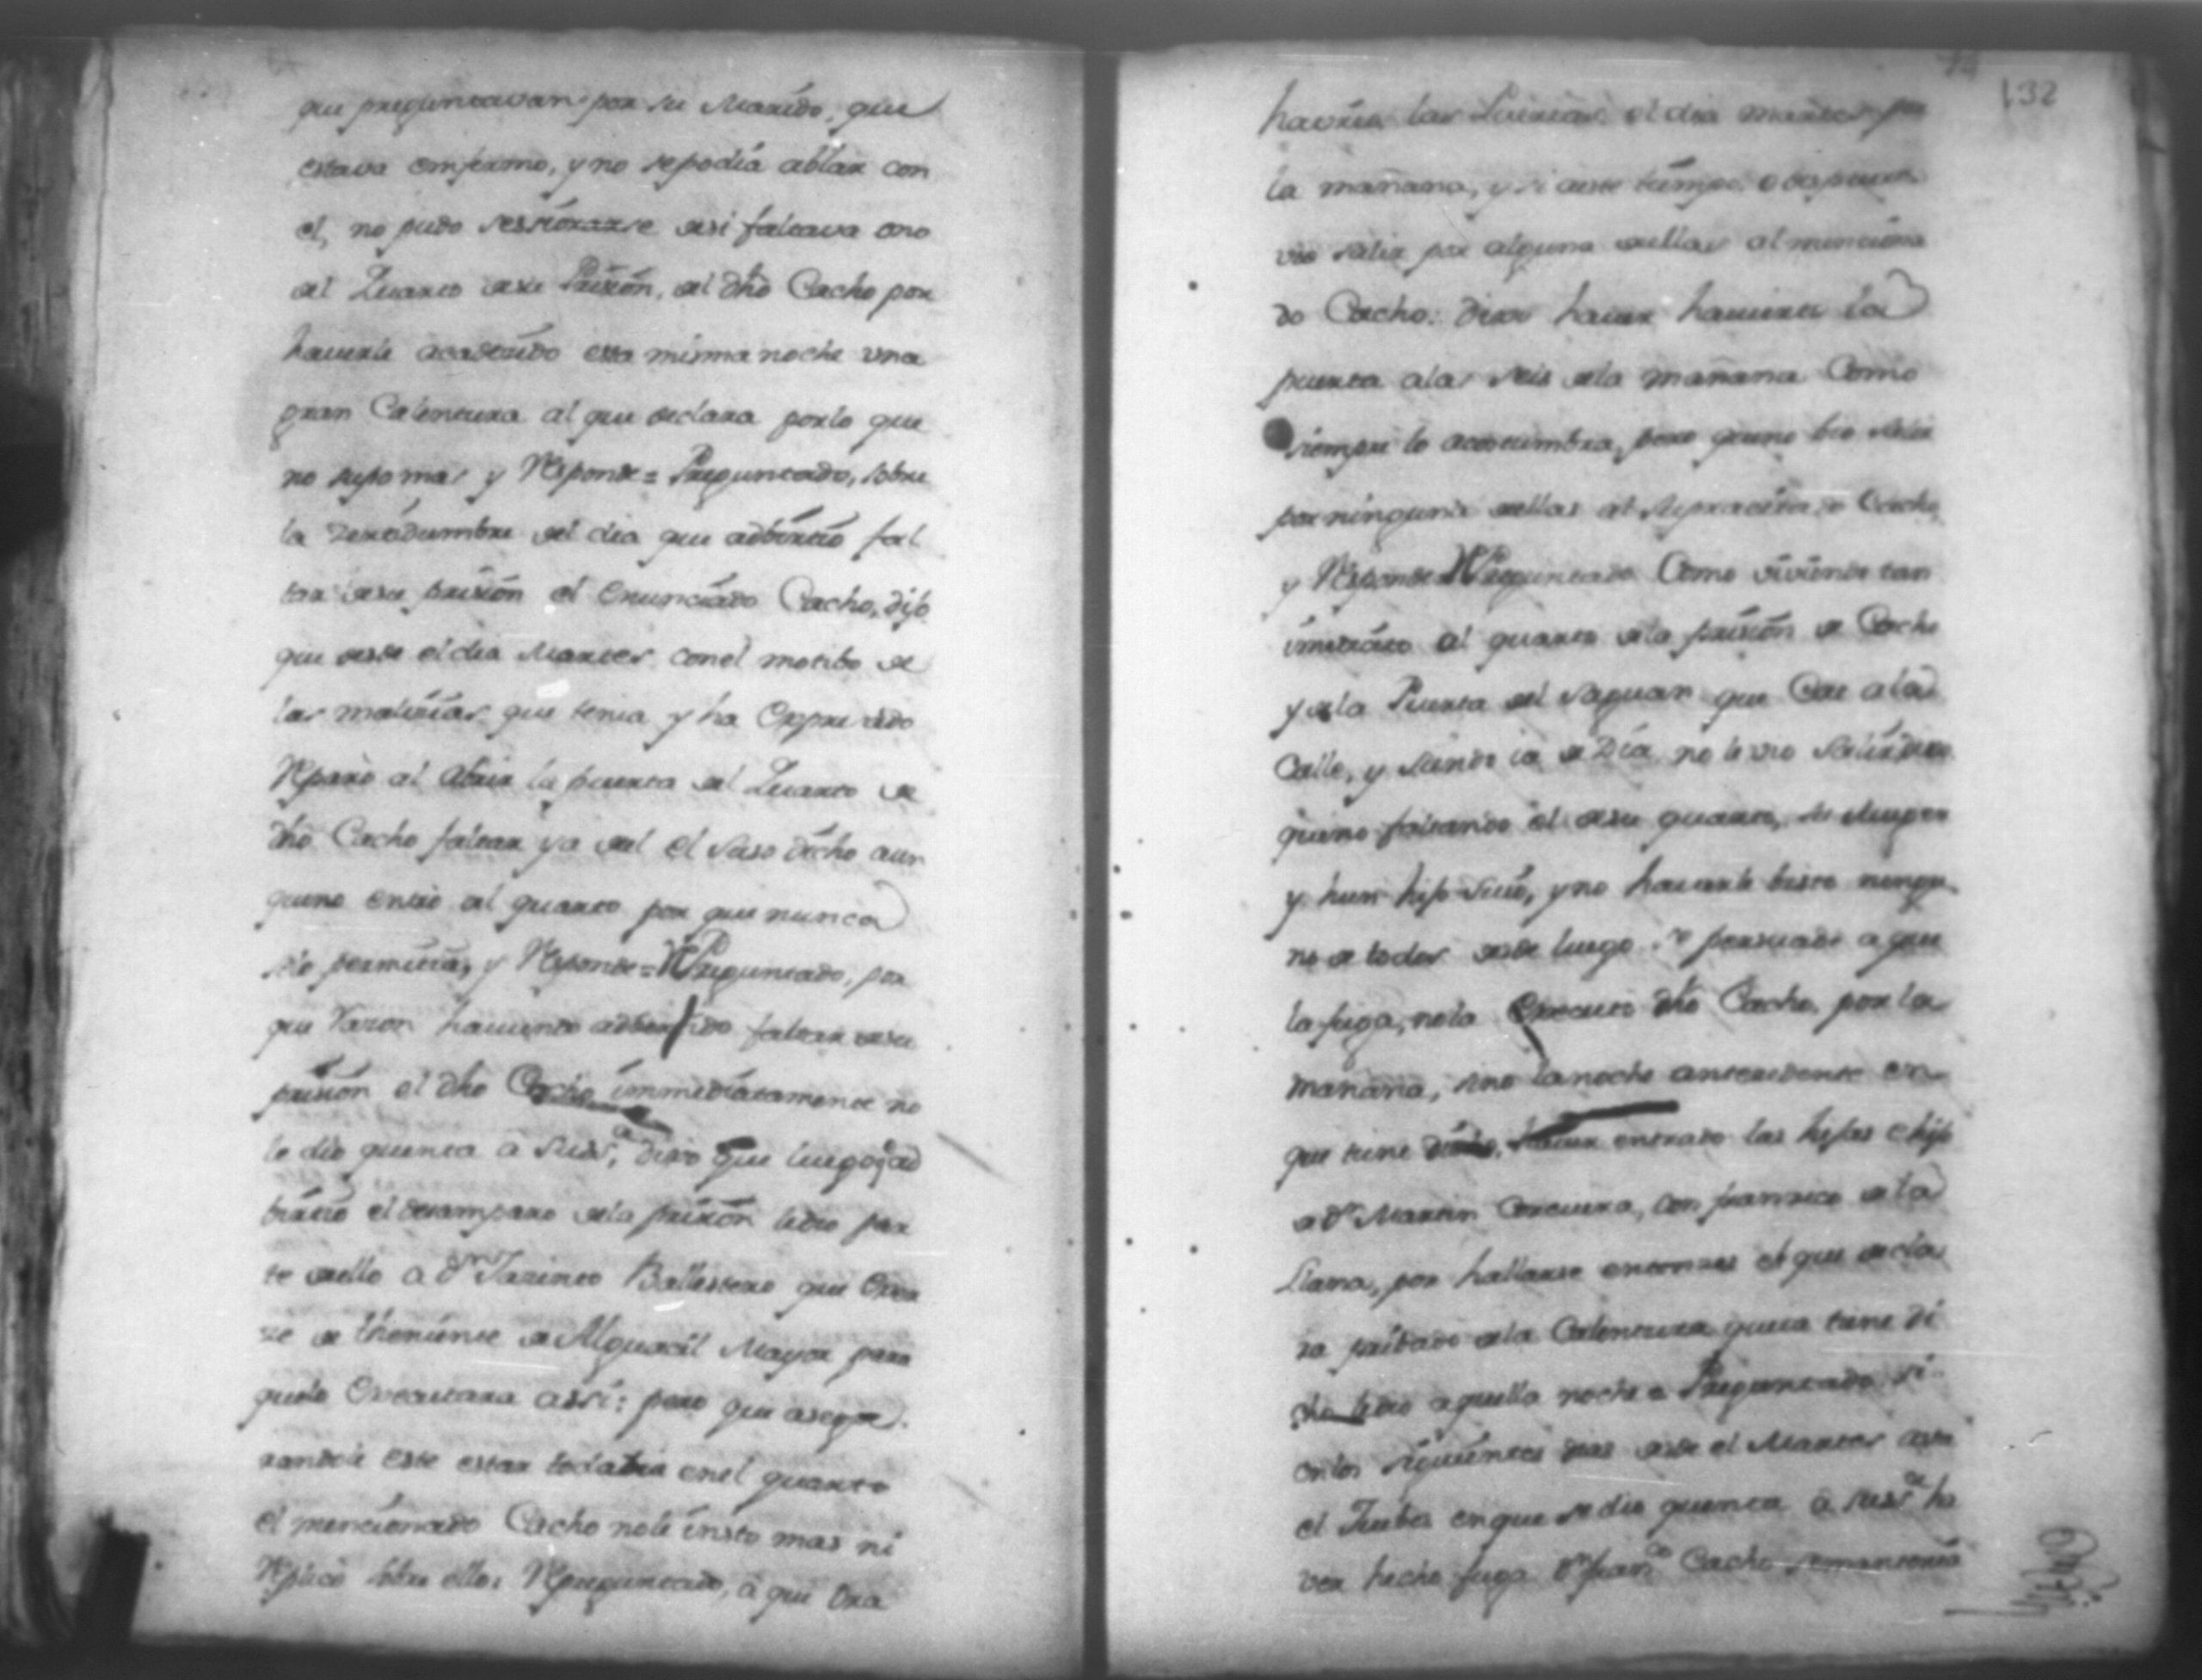 que preguntavan por su Marido, que
estava emfermo, y no sepodia ablar con
el, no pudo sessiorarse desi faltava o no
del Quarto desu Prision, el dho Cacho por
haverle acaezido essa misma noche una
gran Calentura al que declara porlo que
no supo mas y Responde = Preguntado, sobre
la zertidumbre del dia que adbirtio fal
tar desu prision el enunciado Cacho, dijo
que desde el dia Martes conel motibo de
las malicias que tenia y ha Expresado
Reparò al abrir la puerta del Quarto de
dho Cacho faltar ya del el suso dicho aun
queno entrò al quarto por que nunca
selo permitia, y Responde = RPreguntado, por
que razon haviendo adbertido faltar desu
prision el dho Cacho immediatamente no
le dio quenta â Sussª, dixo que luegoqe ad
birtio el desamparo dela prision ledio par
te dello a Dn Jazinto Ballestero que Exer
ze de theniente de Alguacil Mayor para
quelo Executara assi: pero que asegu
randole este estar todabia enel quarto
el mencionado Cacho nole insto mas ni
Replicò sobre ello: Repreguntado, â que Ora
132
havrio las Puertas el dia martes por
la mañana, y si aeste tiempo o despues
vio salir por alguna dellas al menciona
do Cacho: dixo haver havierto la
puerta alas seis dela mañana Como
siempre lo acostumbra, pero queno bio salir
por ninguna dellas al Supracitado Cacho,
y Responde = RPreguntado Como viviendo tan
imediato al quarto dela prision de Cacho
y dela Puerta del Saguan que Cae ala
Calle, y siendo ia de Dia no le vio salir, dixo
queno faltando el desu quarto, su Muger
y hun hijo suio, y no haverle bisto ningu
no de todos desde luego se persuade a que
la fuga, nola Executo dho Cacho por la
mañana, sino la noche antecedente en
que tiene dicho, haver entrado las hijas e hijo
de Dn Martin Corcuera, con franzisco dela
Llana, por hallarse entonzes el que decla
ra pribado dela Calentura queia tiene di
cho ledio aquella noche = Preguntado si
enlos siguientes dias desde el Martes asta
el Juebes enque se dio quenta â Sussª ha
ver hecho fuga Dn Franco Cacho semantenia